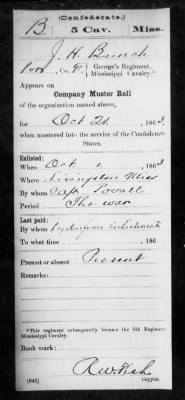 (Confederate.)
B 5 Cav. Miss.
J. H. Bunch
Co. F, George's Regiment,
Mississippi Cavalry.*
Appears on
Company Muster Roll
of the organization named above,
for Oct 21, 1863,
when mustered into the service of the Confederate
States.
Enlisted:
When Oct 1, 1863
Where Livingston Miss
By whom Capt Povall
Period The war
Last paid:
By whom
To what time , 186
Present or absent Present
Remarks:
*This regiment subsequently became the 5th Regiment
Mississippi Cavalry.
Book mark:
(642) Copyist.